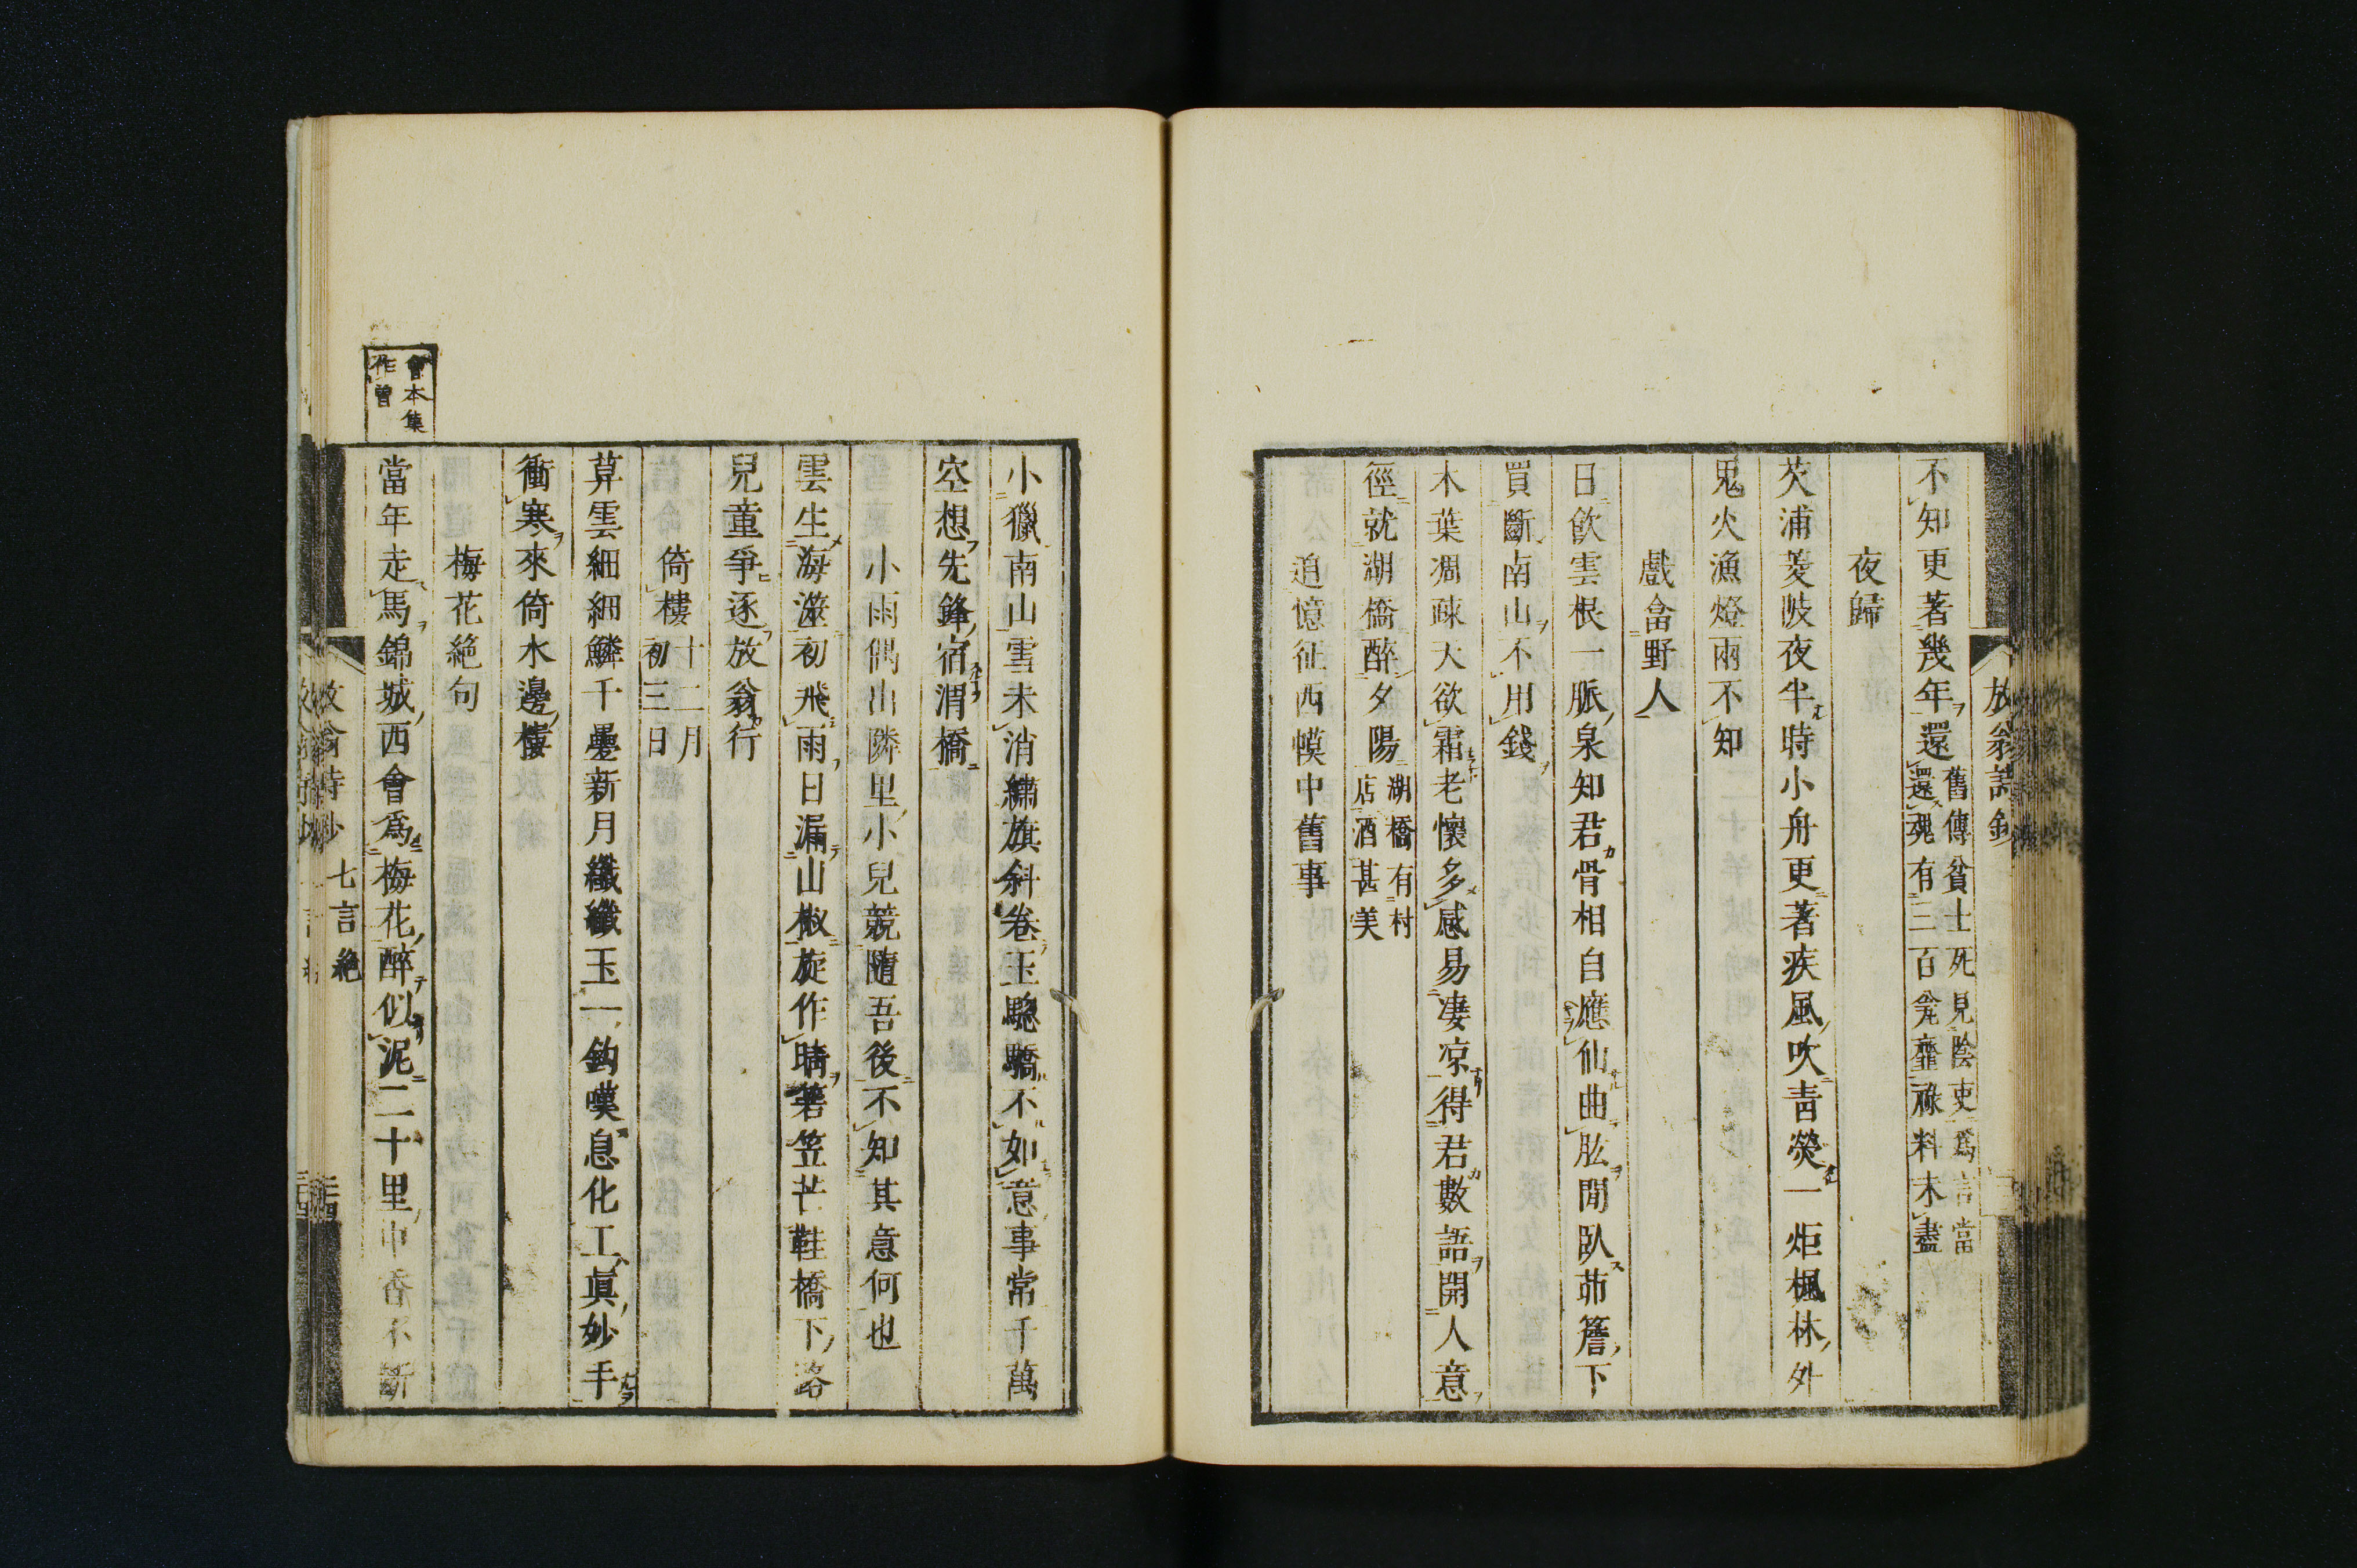 不知更著幾年還 舊傳貧士死見陰吏爲言當
還魂有三百瓮虀祿料未盡
夜歸
芡浦菱陂夜半時小舟更著疾風吹青熒一炬楓林外
鬼火漁燈兩不知
戲畣野人
日飲雲根一脈泉知君骨相自應仙曲肱閒臥茆簷下
買斷南山不用錢
木葉凋疎天欲霜老懷多感易凄凉得君數語開人意
徑就湖橋醉夕陽 湖橋有村
店酒甚美
追憶征西幙中舊事
小獵南山雪未消繡旗斜卷玉驄驕不如意事常千萬
空想先鋒宿渭橋
小雨偶出隣里小兒競隨吾後不知其意何也
雲生海澨初飛雨日漏山椒旋作晴箬笠芒鞋橋下路
兒童爭逐放翁行
倚樓 十二月
初三日
算雲細細鱗千疊新月纖纖玉一鈎嘆息化工眞妙手
衝寒來倚水邊樓
梅花絶句
會本集
作曾
當年走馬錦城西會爲梅花醉似泥二十里中香不斷
放翁詩鈔 七言絶